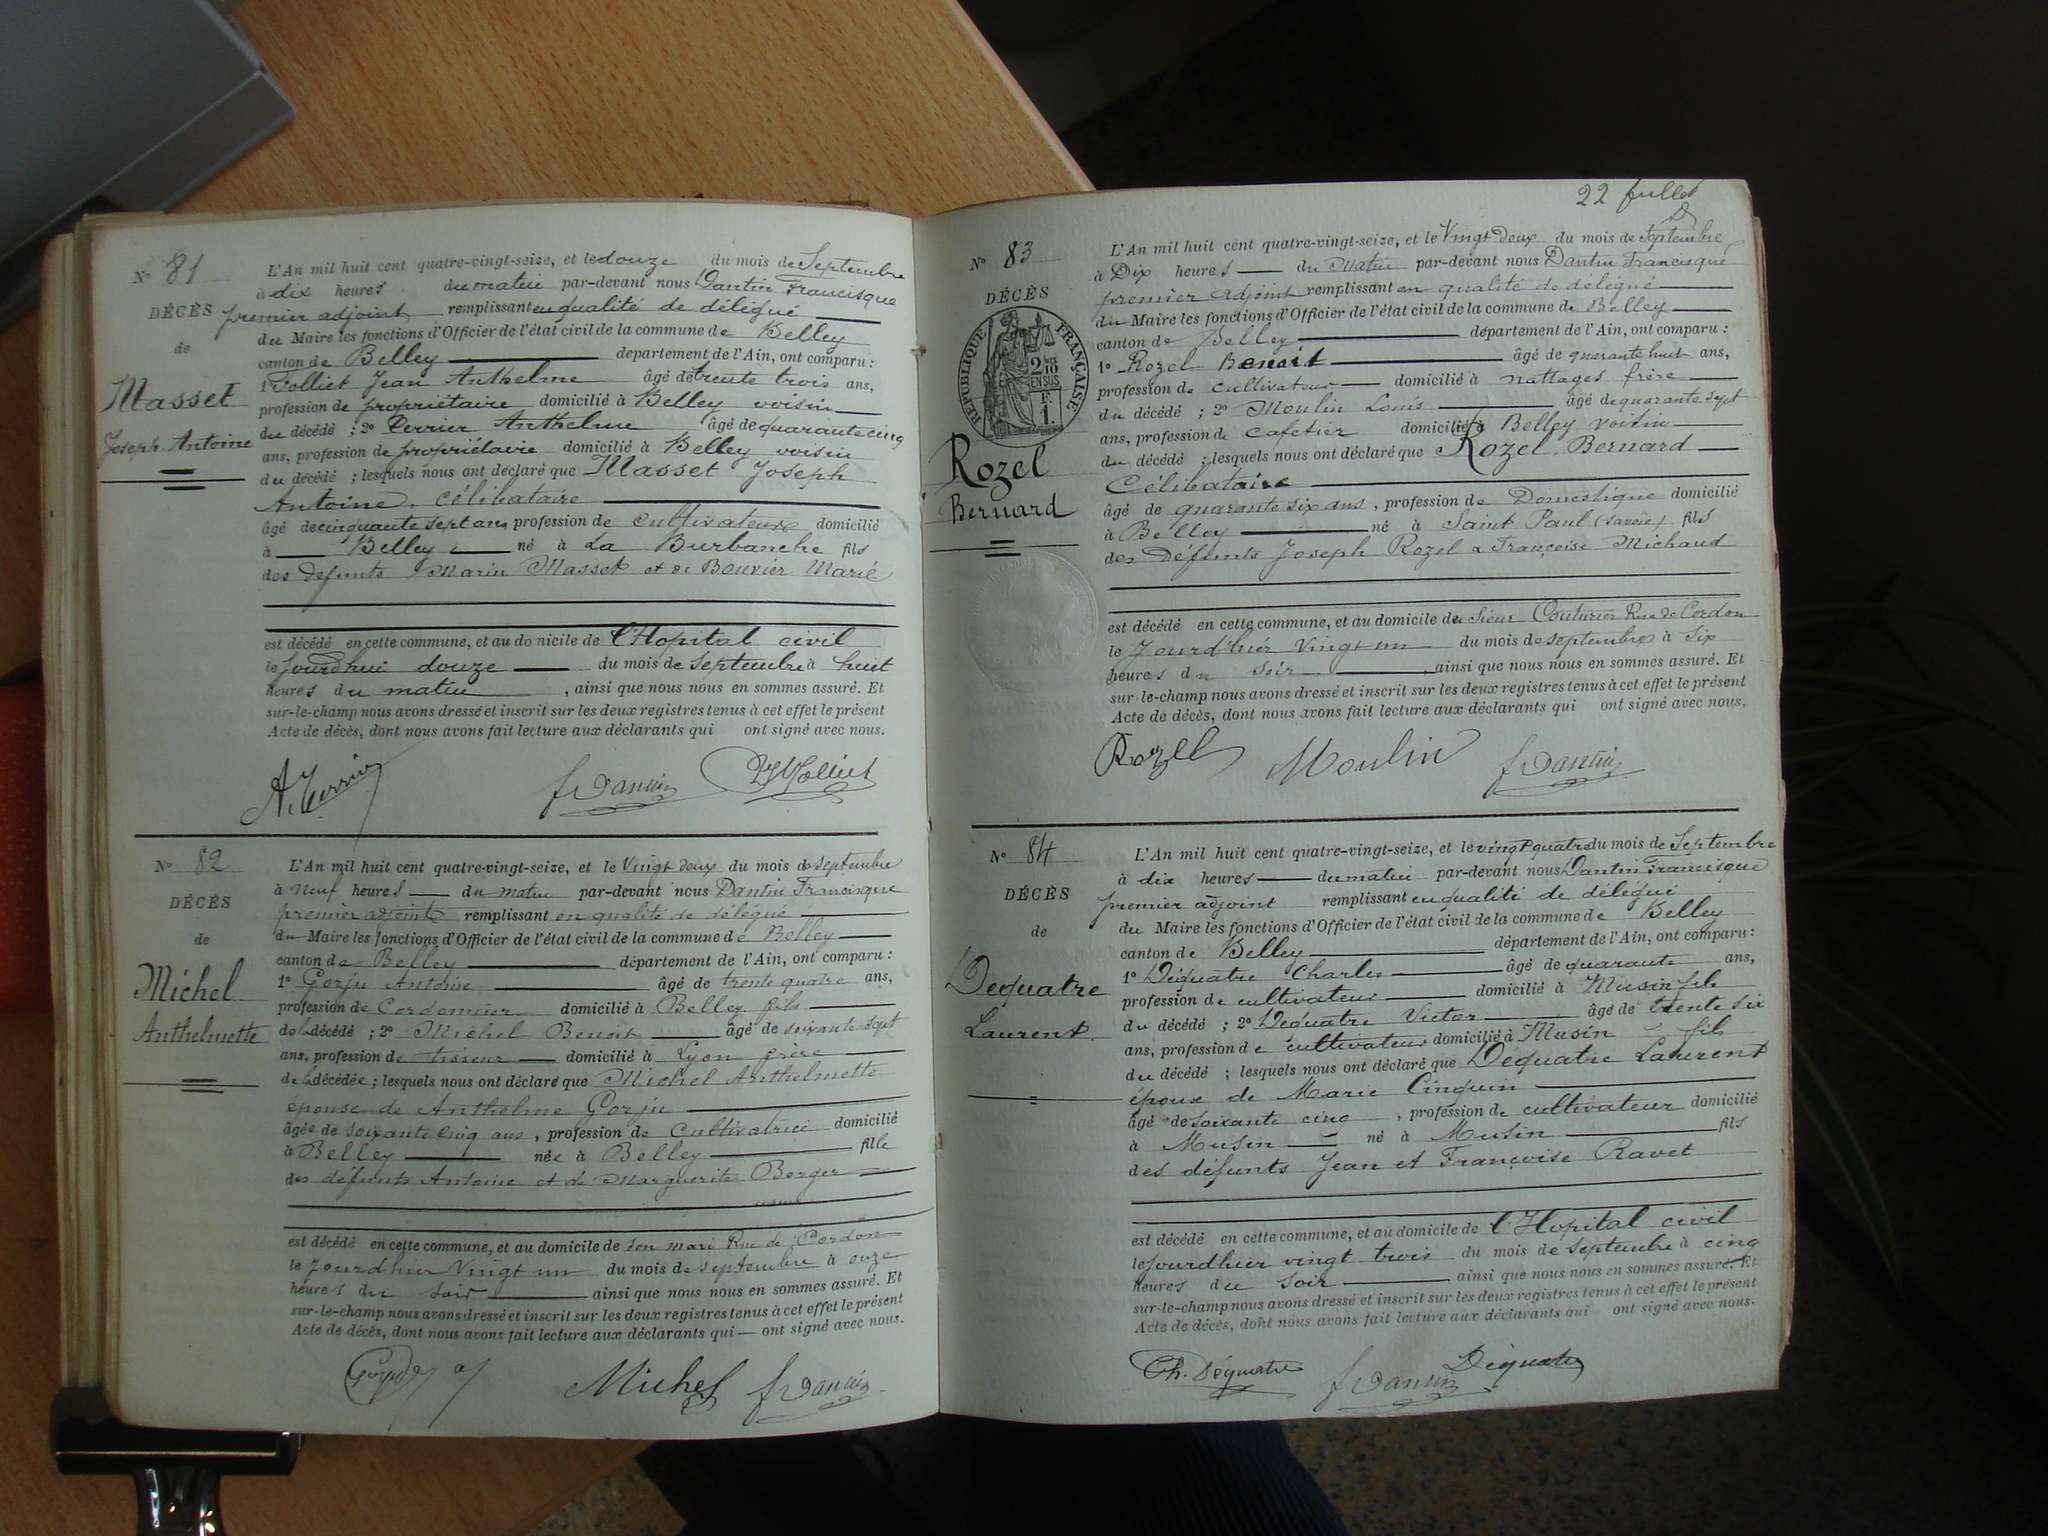 N° 81
DÉCÈS
de
Masset
Joseph Antoine
L'An mil huit cent quatre-vingt-seize, et le douze du mois de Septembre
à dix heures du matin par-devant nous Dantin Francisque
premier adjoint remplissant en qualité de délégué
du Maire les fonctions d'Officier de l'état civil de la commune de Belley
canton de Belley département de l'Ain, ont comparu :
1° Folliet Jean Anthelme âgé de trente trois ans,
profession de propriétaire domicilié à Belley voisin
du décédé ; 2° Perrier Anthelme âgé de quarante cinq
ans, profession de propriétaire domicilié à Belley voisin
du décédé ; lesquels nous ont déclaré que Masset Joseph
Antoine. célibataire
âgé de cinquante sept ans profession de cultivateur domicilié
à Belley né à La Burbanche fils
des défunts Marin Masset et de Bouvier Marie
est décédé en cette commune, et au domicile de l'Hopital civil
le jourdhui douze du mois de septembre à huit
heures du matin , ainsi que nous nous en sommes assuré. Et
sur-le-champ nous avons dressé et inscrit sur les deux registres tenus à cet effet le présent
Acte de décès, dont nous avons fait lecture aux déclarants qui ont signé avec nous.
fDantin
N° 82
DÉCÈS
de
Michel
Anthelmette
L'An mil huit cent quatre-vingt-seize, et le Vingt deux du mois de septembre
à neuf heures du matin par-devant nous Dantin Francisque
premier adjoint remplissant en qualité de délégué
du Maire les fonctions d'Officier de l'état civil de la commune de Belley
canton de Belley département de l'Ain, ont comparu :
1° Gorju Antoine âgé de trente quatre ans,
profession de Cordonnier domicilié à Belley fils
de la décédé ; 2° Michel Benoit âgé de soixante sept
ans, profession de tisseur domicilié à Lyon frère
de la décédée ; lesquels nous ont déclaré que Michel Anthelmette
épouse de Anthelme Gorju
âgée de soixante cinq ans, profession de Cultivatrice domicilié
à Belley née à Belley fille
des défunts Antoine et de Marguerite Berger
est décédé en cette commune, et au domicile de son mari Rue de Cordon
le Jourdhier Vingt un du mois de septembre à onze
heures du soir ainsi que nous nous en sommes assuré. Et
sur-le-champ nous avons dressé et inscrit sur les deux registres tenus à cet effet le présent
Acte de décès, dont nous avons fait lecture aux déclarants qui — ont signé avec nous.
Michel fDantin
22
N° 83
DÉCÈS
RÉPUBLIQUE FRANÇAISE
2/10
EN SUS
F.
1.
Rozel
Bernard
L'An mil huit cent quatre-vingt-seize, et le Vingt deux du mois de septembre
à Dix heures du Matin par-devant nous Dantin Francisque
premier adjoint remplissant en qualité de délégué
du Maire les fonctions d'Officier de l'état civil de la commune de Belley
canton de Belley département de l'Ain, ont comparu :
1° Rozel Benoit âgé de quarante huit ans,
profession de cultivateur domicilié à nattages frère
du décédé ; 2° Moulin Louis âgé de quarante sept
ans, profession de cafetier domicilié à Belley voisin
du décédé ; lesquels nous ont déclaré que Rozel Bernard
Célibataire
âgé de quarante six ans, profession de Domestique domicilié
à Belley né à Saint Paul (savoie) fils
des Défunts Joseph Rozel & Françoise Michaud
est décédé en cette commune, et au domicile du Sieur Couturier Rue de Cordon
le Jourd'hier Vingt un du mois de septembre à six
heures du soir , ainsi que nous nous en sommes assuré. Et
sur-le-champ nous avons dressé et inscrit sur les deux registres tenus à cet effet le présent
Acte de décès, dont nous avons fait lecture aux déclarants qui ont signé avec nous,
Rozel Moulin fDantin
N° 84
DÉCÈS
de
Dequatre
Laurent.
L'An mil huit cent quatre-vingt-seize, et le vingt quatre du mois de Septembre
à dix heures du matin par-devant nous Dantin Francisque
premier adjoint remplissant en qualité de délégué
du Maire les fonctions d'Officier de l'état civil de la commune de Belley
canton de Belley département de l'Ain, ont comparu :
1° Déquatre Charles âgé de quarante ans,
profession de cultivateur domicilié à Musin fils
du décédé ; 2° Déquatre Victor âgé de trente six
ans, profession de cultivateur domicilié à Musin fils
du décédé ; lesquels nous ont déclaré que Déquatre Laurent
époux de Marie Cinquin
âgé de soixante cinq , profession de cultivateur domicilié
à Musin né à Musin fils
des défunts Jean et Françoise Ravet
est décédé en cette commune, et au domicile de l'Hôpital civil
le jourdhier vingt trois du mois de septembre à cinq
heures du soir ainsi que nous nous en sommes assuré. Et
sur-le-champ nous avons dressé et inscrit sur les deux registres tenus à cet effet le présent
Acte de décès, dont nous avons fait lecture aux déclarants qui ont signé avec nous.
Ch. Déquatre fDantin Déquatre